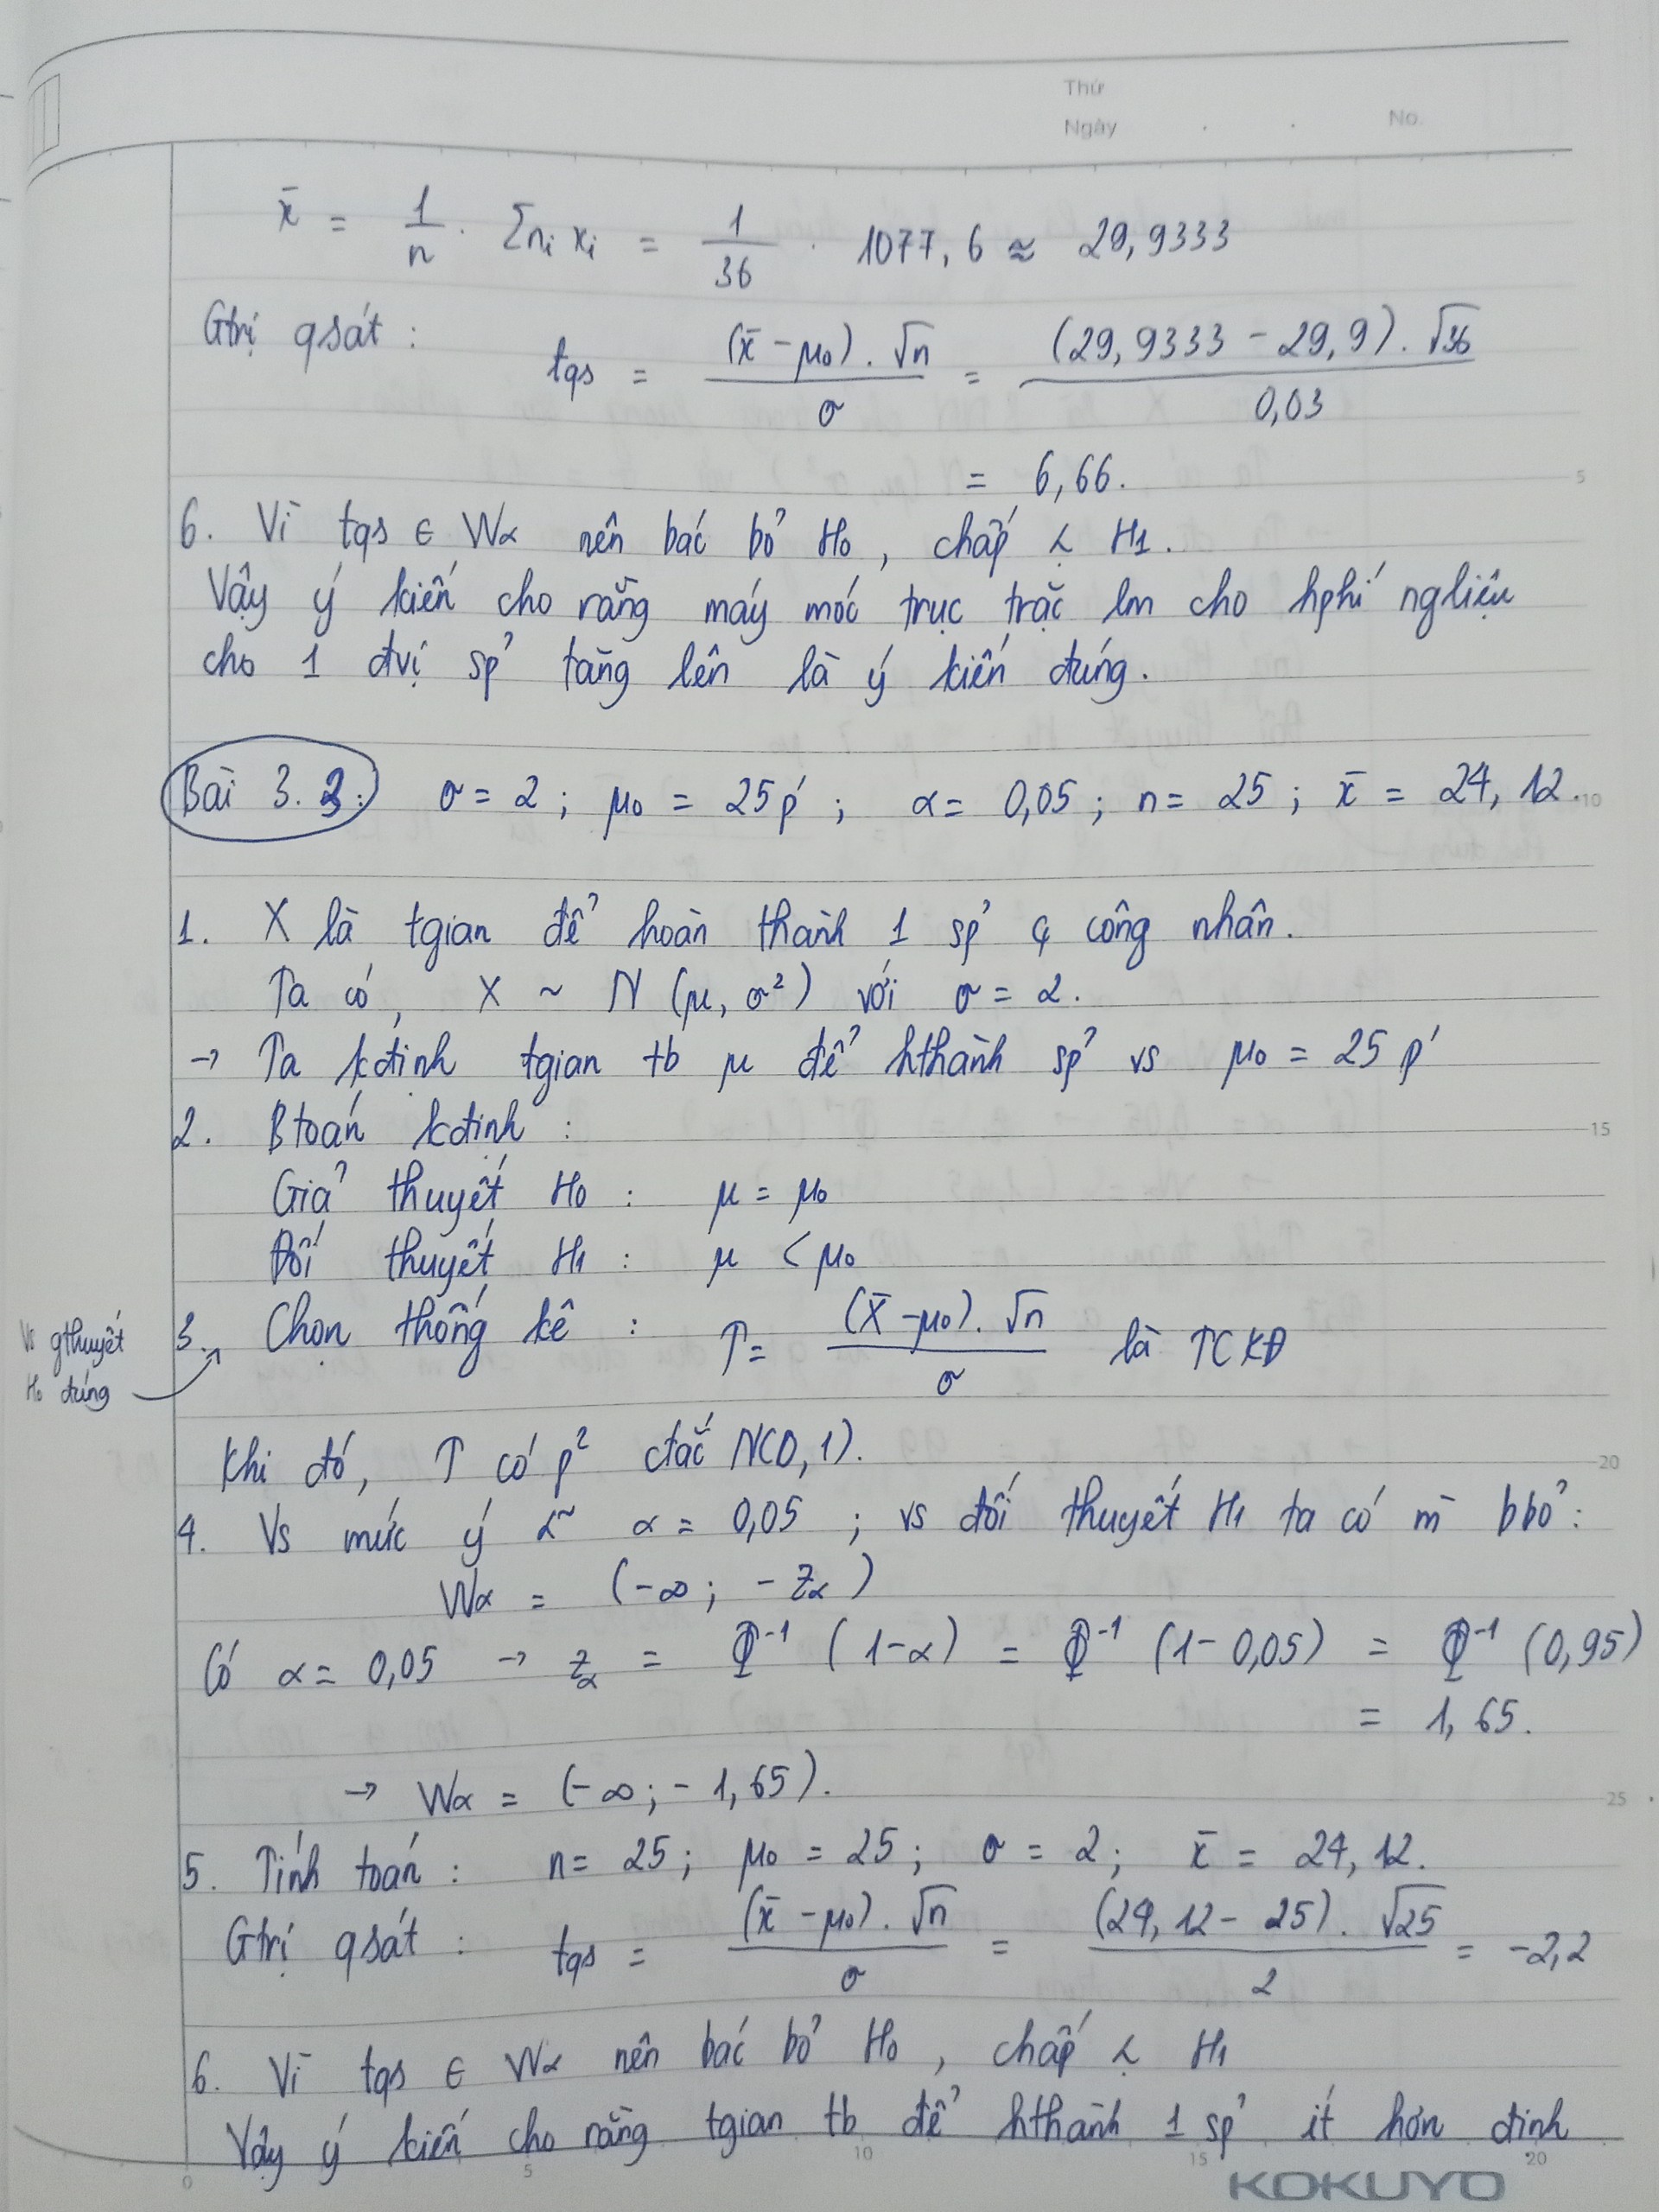 Thứ
Ngày . . No.
x̄ = 1/n . Σnᵢ xᵢ = 1/36 . 1077,6 ≈ 29,9333
Gtrị qsát : tqs = (x̄ - μ₀) . √n / σ = (29,9333 - 29,9) . √36 / 0,03
= 6,66.
6. Vì tqs ∈ Wα nên bác bỏ H₀ , chấp H₁.
Vậy ý kiến cho rằng máy móc trục trặc lm cho hphí ngliệu
cho 1 đvị sp' tăng lên là ý kiến đúng.
Bài 3.3: σ = 2 ; μ₀ = 25 p' ; α = 0,05 ; n = 25 ; x̄ = 24,12.
1. X là tgian để hoàn thành 1 sp' công nhân.
Ta có, X ~ N (μ, σ²) với σ = 2.
→ Ta kđịnh tgian tb μ để hthành sp' vs μ₀ = 25 p'
2. Btoán kđịnh :
Giả thuyết H₀ : μ = μ₀
Đối thuyết H₁ : μ < μ₀
Vs gthuyết
H₀ đúng
3. Chọn thống kê : T = (X̄ - μ₀) . √n / σ là TCKĐ
Khi đó, T có p² ctắc N(0,1).
4. Vs mức ý α = 0,05 ; vs đối thuyết H₁ ta có m` bbỏ :
Wα = (-∞ ; - zα )
Có α = 0,05 → zα = Φ⁻¹ (1-α) = Φ⁻¹ (1- 0,05) = Φ⁻¹ (0,95)
= 1,65.
→ Wα = (-∞ ; - 1,65).
5. Tính toán : n = 25 ; μ₀ = 25 ; σ = 2 ; x̄ = 24,12.
Gtrị qsát : tqs = (x̄ - μ₀) . √n / σ = (24,12 - 25) . √25 / 2 = -2,2
6. Vì tqs ∈ Wα nên bác bỏ H₀ , chấp H₁
Vậy ý kiến cho rằng tgian tb để hthành 1 sp' ít hơn định
KOKUYO